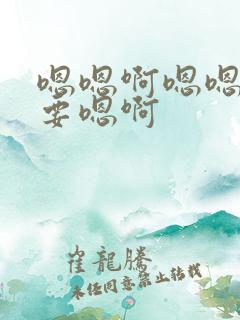 嗯嗯啊嗯嗯
要嗯啊
崔龍騰
未经同意禁止转载